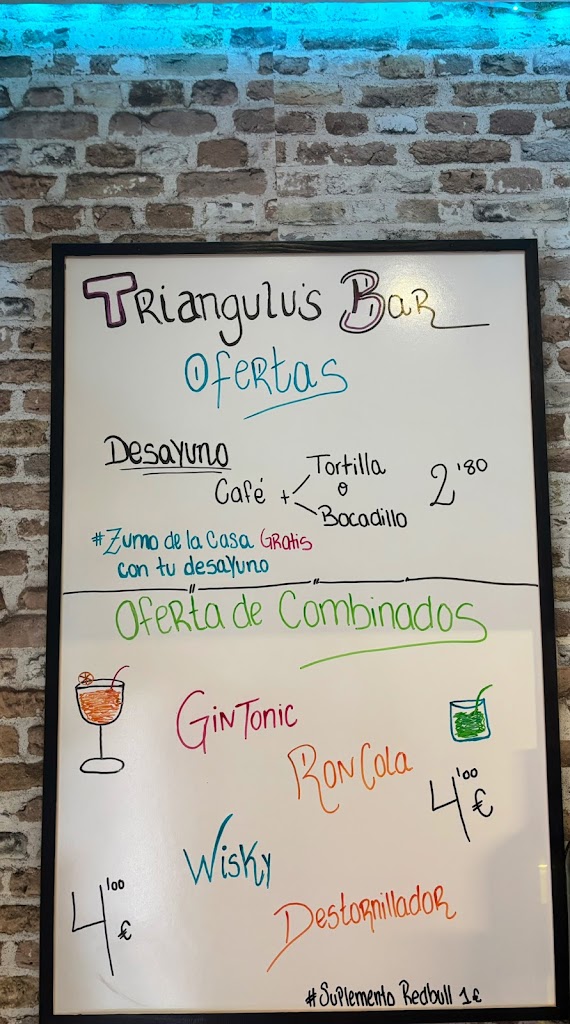 Triangulu's Bar
Ofertas
Desayuno
Café + Tortilla o Bocadillo 2'80
#Zumo de la Casa Gratis
con tu desayuno
Oferta de Combinados
GinTonic
RonCola
4'00 €
Wisky
4'00 €
Destornillador
#Suplemento Redbull 1€